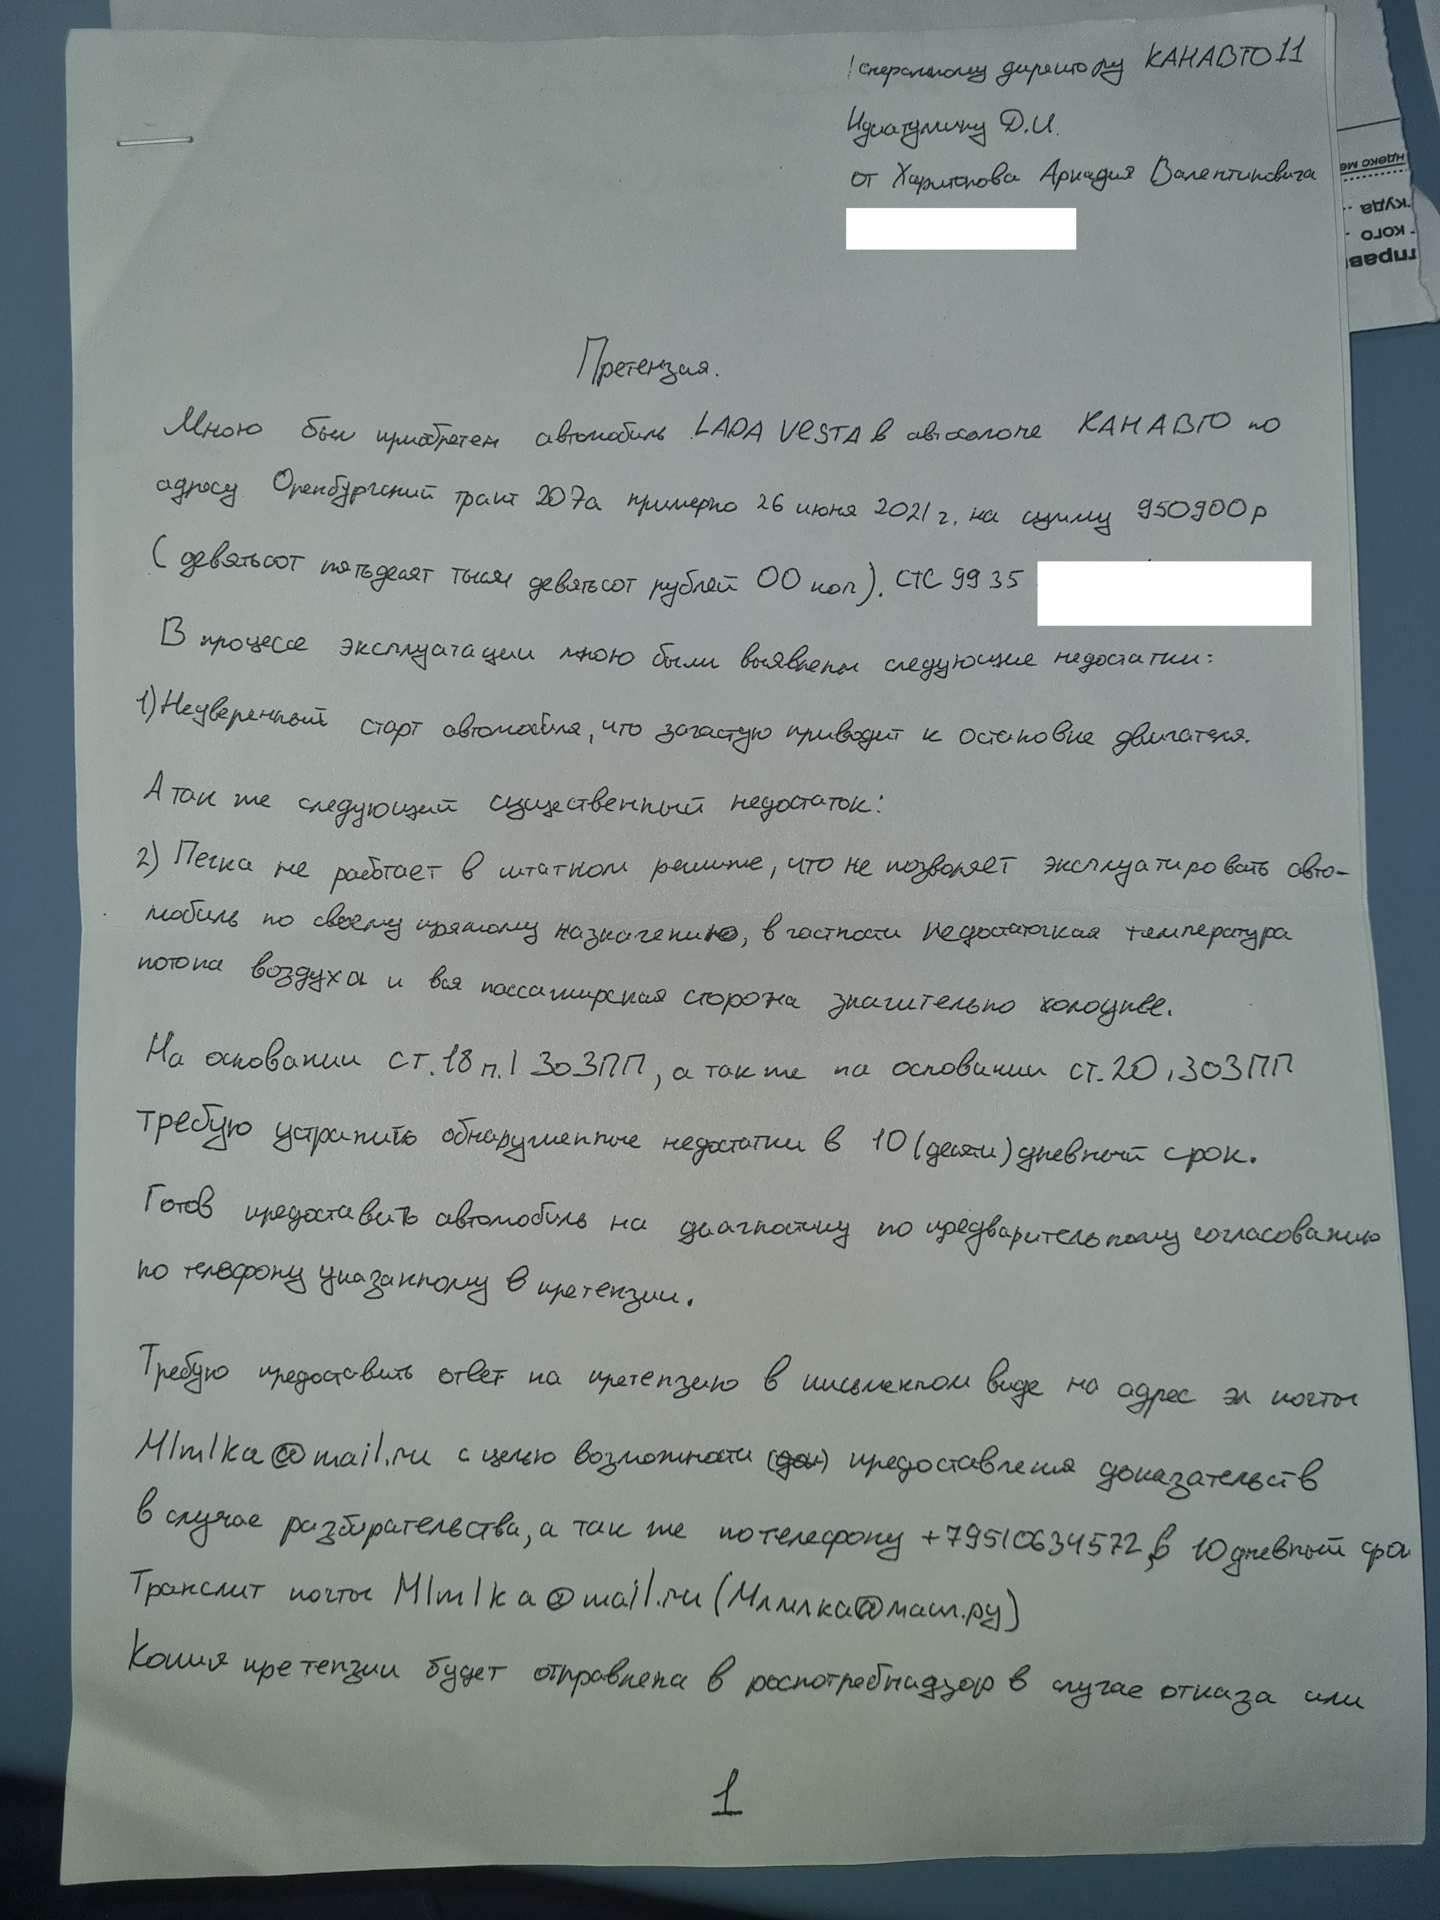 Генеральному директору КАНАВТО11
Д.И.
от Харитонова Аркадия Валентиновича
ндекс ме
куда
кого
тправ
Претензия.
Мною был приобретен автомобиль LADA VESTA в автосалоне КАНАВТО по
адресу Оренбургский тракт 207а примерно 26 июня 2021 г. на сумму 950900р
(девятьсот пятьдесят тысяч девятьсот рублей 00 коп). СТС 99 35
В процессе эксплуатации мною были выявлены следующие недостатки:
1) Неуверенный старт автомобиля, что зачастую приводит к остановке двигателя.
А так же следующий существенный недостаток:
2) Печка не работает в штатном режиме, что не позволяет эксплуатировать авто-
мобиль по своему прямому назначению, в частности недостаточная температура
потока воздуха и вся пассажирская сторона значительно холоднее.
На основании ст.18 п.1 ЗоЗПП, а так же на основании ст.20, ЗоЗПП
требую устранить обнаруженные недостатки в 10 (десяти) дневный срок.
Готов предоставить автомобиль на диагностику по предварительному согласованию
по телефону указанному в претензии.
Требую предоставить ответ на претензию в письменном виде на адрес эл почты
Mlmlka@mail.ru с целью возможности предоставления доказательств
в случае разбирательства, а так же по телефону +79510634572, в 10 дневный срок
Транслит почты Mlmlka@mail.ru (Млмлка@маил.ру)
Копия претензии будет отправлена в роспотребнадзор в случае отказа или
1